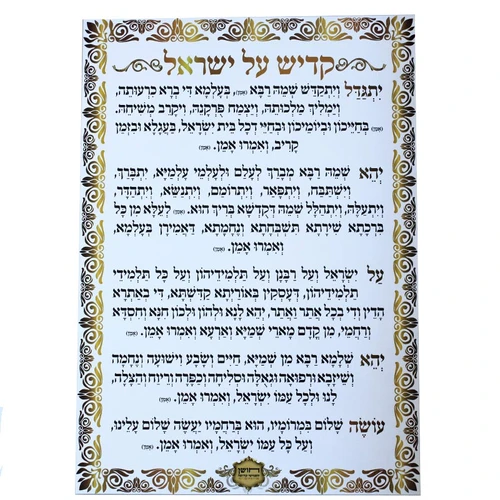 קדיש על ישראל
יִתְגַּדַּל וְיִתְקַדַּשׁ שְׁמֵהּ רַבָּא (אָמֵן), בְּעָלְמָא דִּי בְרָא כִרְעוּתֵהּ,
וְיַמְלִיךְ מַלְכוּתֵהּ, וְיַצְמַח פֻּרְקָנֵהּ, וִיקָרֵב מְשִׁיחֵהּ.
(אָמֵן) בְּחַיֵּיכוֹן וּבְיוֹמֵיכוֹן וּבְחַיֵּי דְכָל בֵּית יִשְׂרָאֵל, בַּעֲגָלָא וּבִזְמַן
קָרִיב, וְאִמְרוּ אָמֵן. (אָמֵן)
יְהֵא שְׁמֵהּ רַבָּא מְבָרַךְ לְעָלַם וּלְעָלְמֵי עָלְמַיָּא, יִתְבָּרַךְ,
וְיִשְׁתַּבַּח, וְיִתְפָּאַר, וְיִתְרוֹמַם, וְיִתְנַשֵּׂא, וְיִתְהַדָּר,
וְיִתְעַלֶּה, וְיִתְהַלָּל שְׁמֵהּ דְּקֻדְשָׁא בְּרִיךְ הוּא. (אָמֵן) לְעֵלָּא מִן כָּל
בִּרְכָתָא שִׁירָתָא תִּשְׁבְּחָתָא וְנֶחָמָתָא, דַּאֲמִירָן בְּעָלְמָא,
וְאִמְרוּ אָמֵן. (אָמֵן)
עַל יִשְׂרָאֵל וְעַל רַבָּנָן וְעַל תַּלְמִידֵיהוֹן וְעַל כָּל תַּלְמִידֵי
תַלְמִידֵיהוֹן, דְּעָסְקִין בְּאוֹרַיְתָא קַדִּשְׁתָּא, דִּי בְאַתְרָא
הָדֵין וְדִי בְכָל אֲתַר וַאֲתַר, יְהֵא לָנָא וּלְהוֹן וּלְכוֹן חִנָּא וְחִסְדָּא
וְרַחֲמֵי, מִן קֳדָם מָארֵי שְׁמַיָּא וְאַרְעָא וְאִמְרוּ אָמֵן. (אָמֵן)
יְהֵא שְׁלָמָא רַבָּא מִן שְׁמַיָּא, חַיִּים וְשָׂבָע וִישׁוּעָה וְנֶחָמָה
וְשֵׁיזָבָא וּרְפוּאָה וּגְאֻלָּה וּסְלִיחָה וְכַפָּרָה וְרֵיוַח וְהַצָּלָה,
לָנוּ וּלְכָל עַמּוֹ יִשְׂרָאֵל, וְאִמְרוּ אָמֵן. (אָמֵן)
עוֹשֶׂה שָׁלוֹם בִּמְרוֹמָיו, הוּא בְּרַחֲמָיו יַעֲשֶׂה שָׁלוֹם עָלֵינוּ,
וְעַל כָּל עַמּוֹ יִשְׂרָאֵל, וְאִמְרוּ אָמֵן. (אָמֵן)
חושן